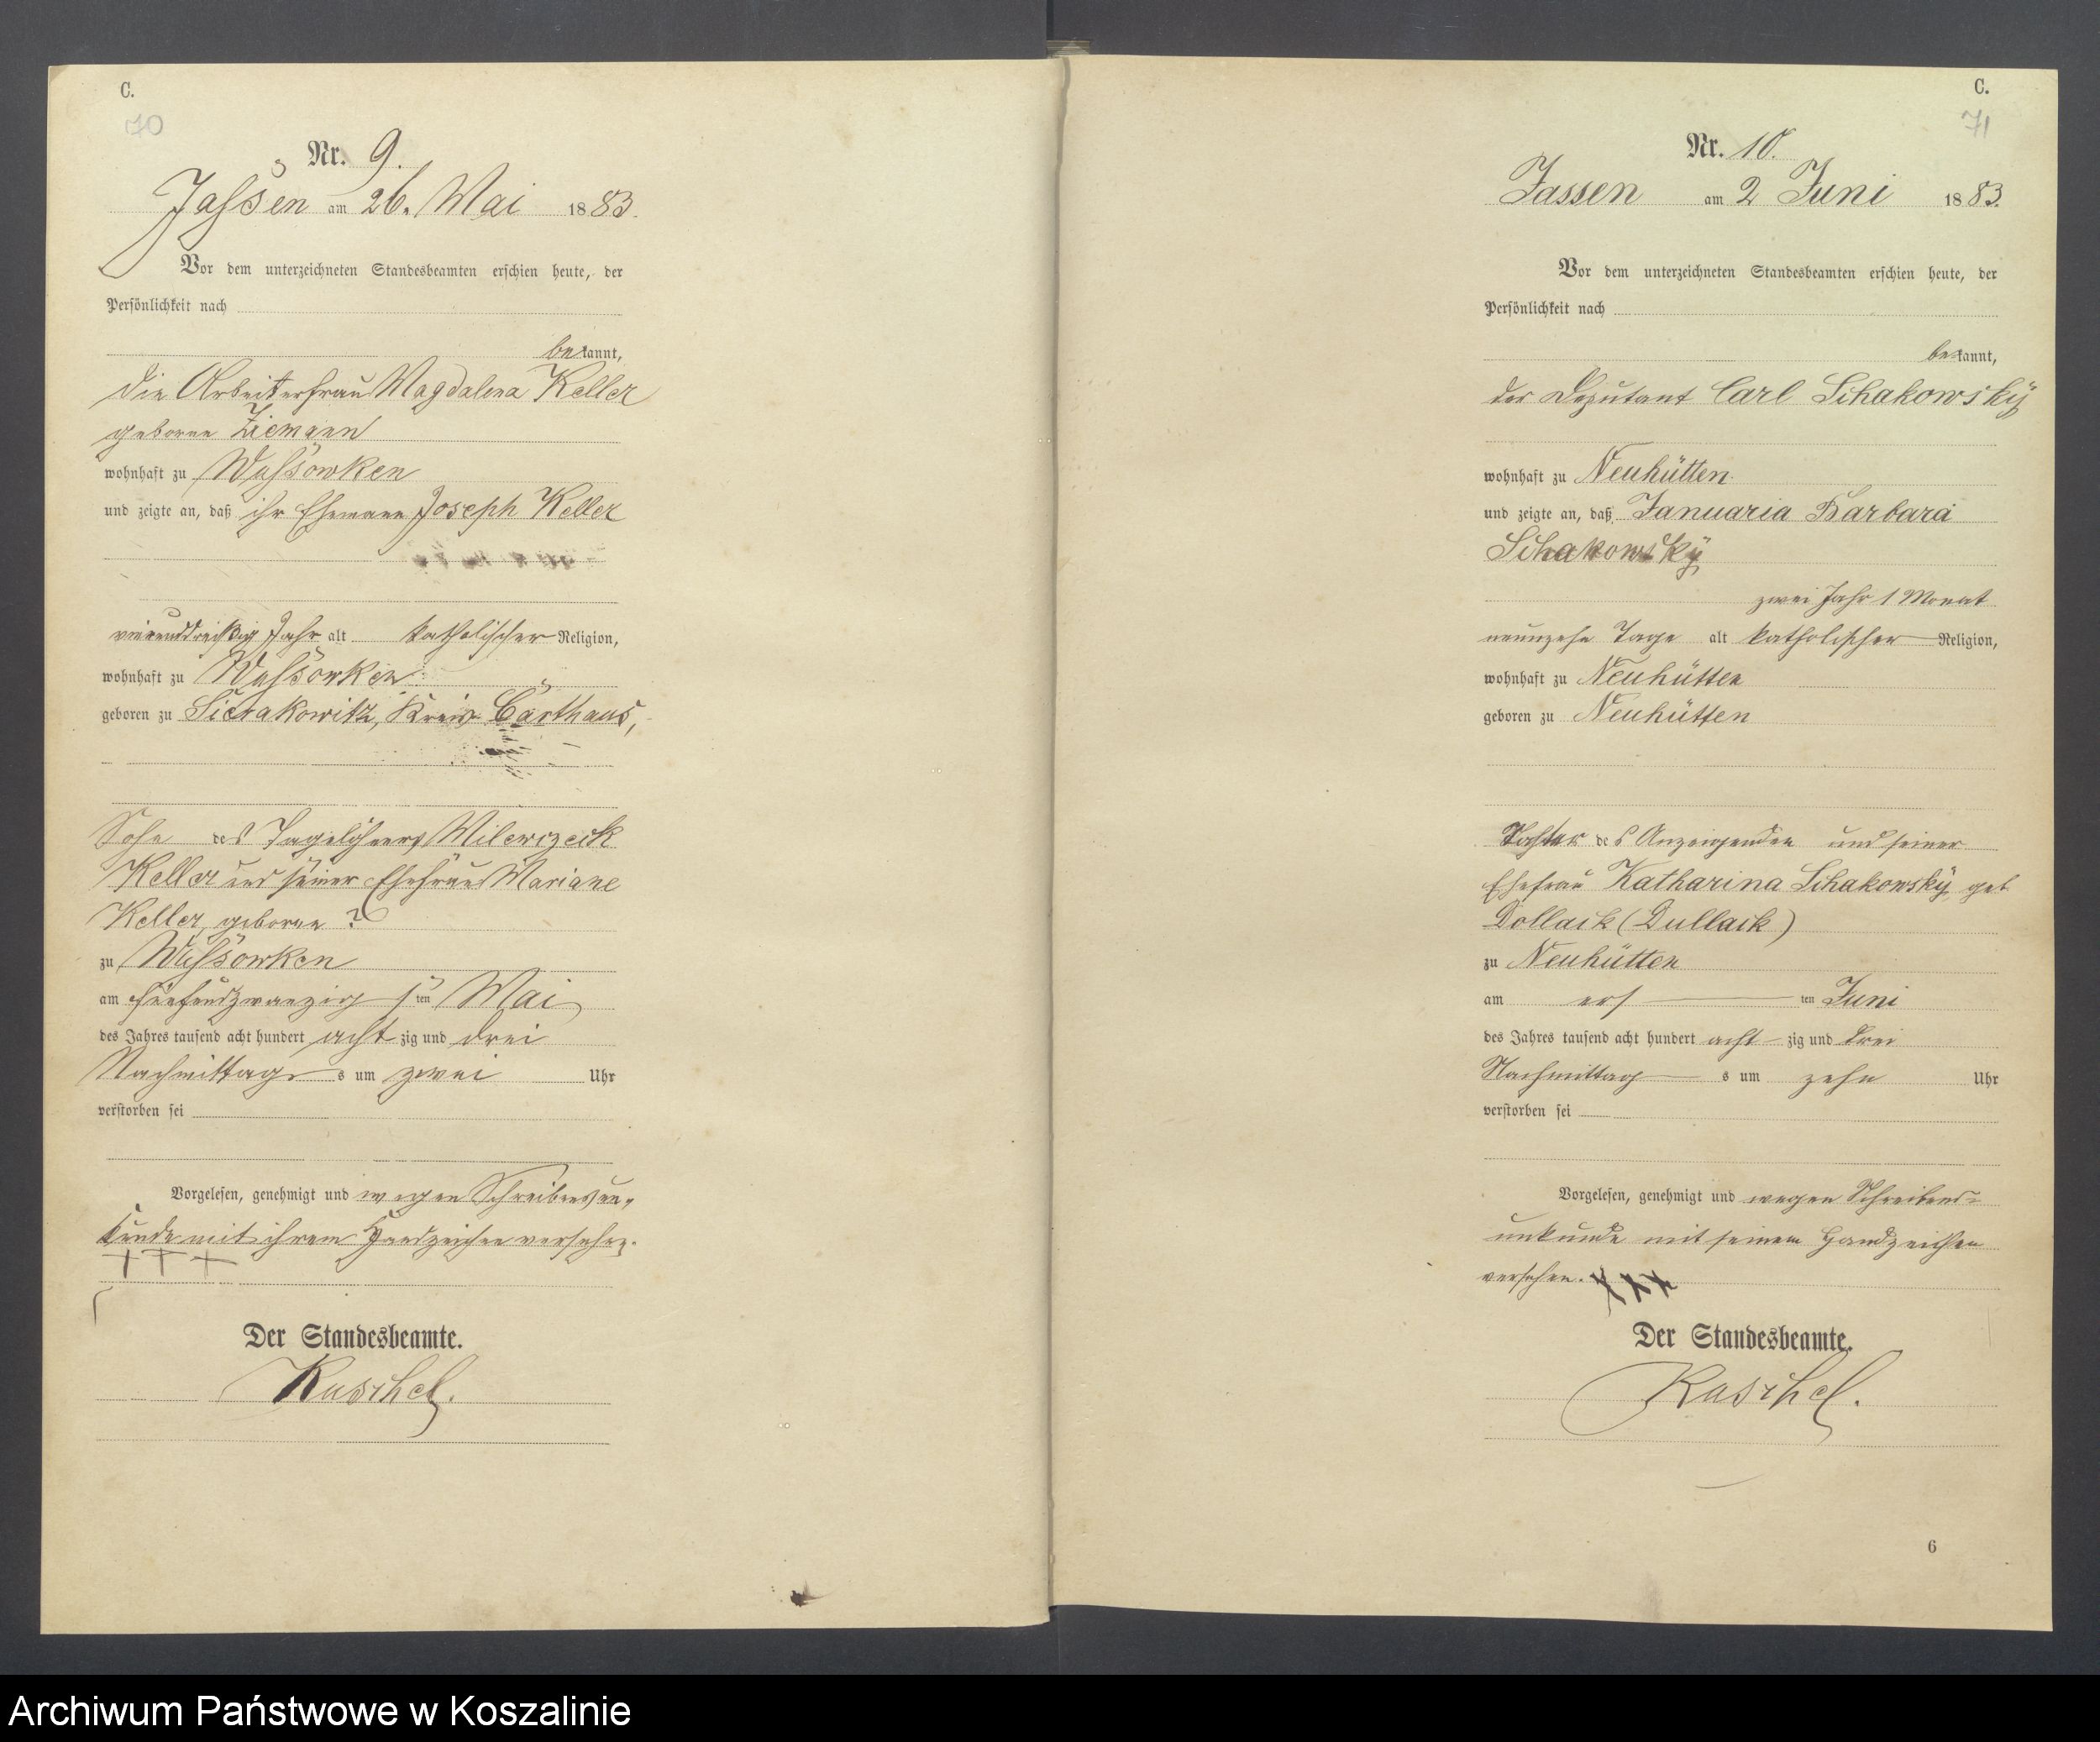 C.
70
Nr. 9.
Jassen am 26. Mai 1883.
Vor dem unterzeichneten Standesbeamten erschien heute, der
Persönlichkeit nach
bekannt,
die Arbeiterfrau Magdalena Keller
geborne Ziemann
wohnhaft zu Wussowken
und zeigte an, daß ihr Ehemann Joseph Keller
vierunddreißig Jahr alt katholischer Religion,
wohnhaft zu Wussowken
geboren zu Sierakowitz, Kreis Carthaus,
Sohn des Tagelöhners Milewczeck
Keller und seiner Ehefrau Mariane
Keller, geborne ?
zu Wussowken
am fünfundzwanzigsten Mai
des Jahres tausend acht hundert achtzig und drei
Nachmittags um zwei Uhr
verstorben sei
Vorgelesen, genehmigt und wegen Schreibensun-
kunde mit ihrem Handzeichen versehen.
+ + +
Der Standesbeamte.
Kuschel.
C.
71
Nr. 10.
Jassen am 2 Juni 1883.
Vor dem unterzeichneten Standesbeamten erschien heute, der
Persönlichkeit nach
bekannt,
der Deputant Carl Schakowsky
wohnhaft zu Neuhütten
und zeigte an, daß Januaria Barbara
Schakowsky
zwei Jahr 1 Monat
neunzehn Tage alt katholischer Religion,
wohnhaft zu Neuhütten
geboren zu Neuhütten
Tochter des Anzeigenden und seiner
Ehefrau Katharina Schakowsky geb
Dollack (Dullack)
zu Neuhütten
am ersten Juni
des Jahres tausend acht hundert achtzig und drei
Nachmittags um zehn Uhr
verstorben sei
Vorgelesen, genehmigt und wegen Schreibens-
unkunde mit seinem Handzeichen
versehen. + + +
Der Standesbeamte.
Kuschel.
6
Archiwum Państwowe w Koszalinie